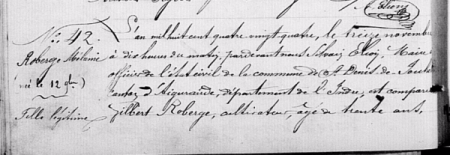 No. 42.
Roberge Mélina
né le 12 9bre
Fille légitime
L'an mil huit cent quatre vingt quatre, le treize novembre
à dix heures du matin, pardevant nous Silvain Eloy, Maire
officier de l'état civil de la commune de St Denis de Jouhet
canton d'Aigurande, département de l'Indre, est comparu
Gilbert Roberge, cultivateur, âgé de trente ans,